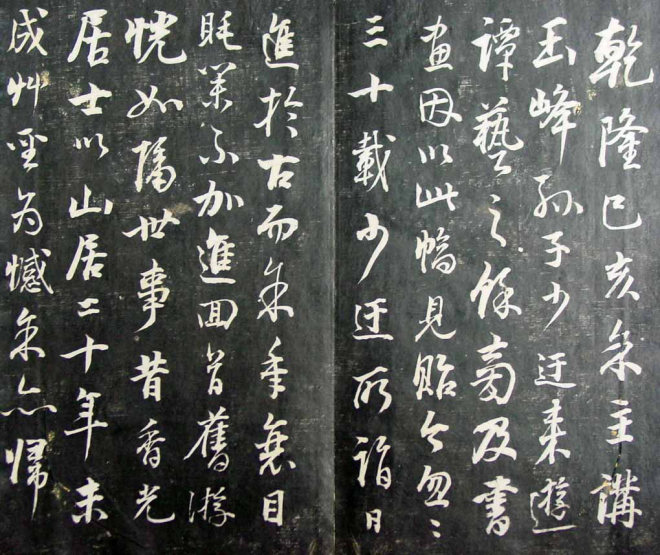 乾隆己亥余主講
玉峰孙子少迂来遊
譚藝之餘旁及書
畫因以此幅見貽今忽〻
三十載少迂所詣日
進於古而余年衰目
眊業不加進回首舊游
恍如隔世事昔香光
居士以山居二十年未
成艸聖为憾余亦歸